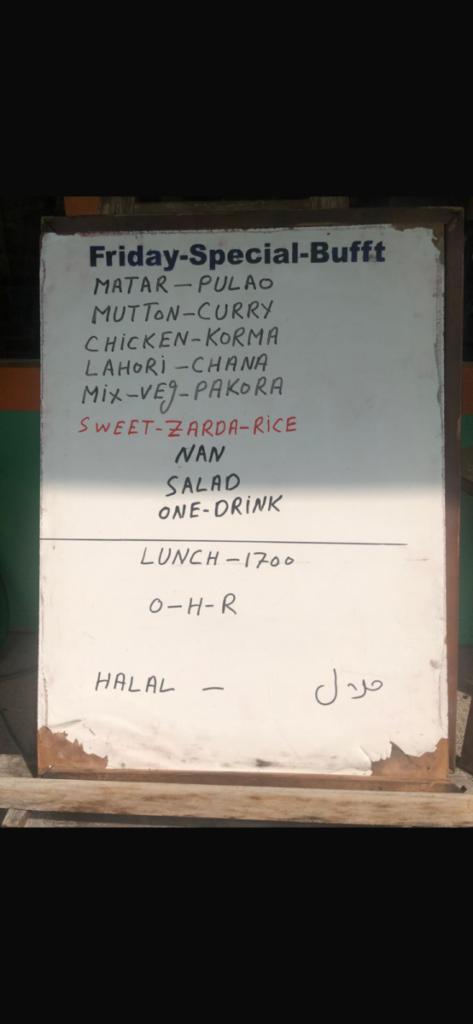 Friday-Special-Bufft
MATAR-PULAO
MUTTON-CURRY
CHICKEN-KORMA
LAHORI-CHANA
MIX-VEg-PAKORA
SWEET-ZARDA-RICE
NAN
SALAD
ONE-DRINK
LUNCH-1700
O-H-R
HALAL - حلال